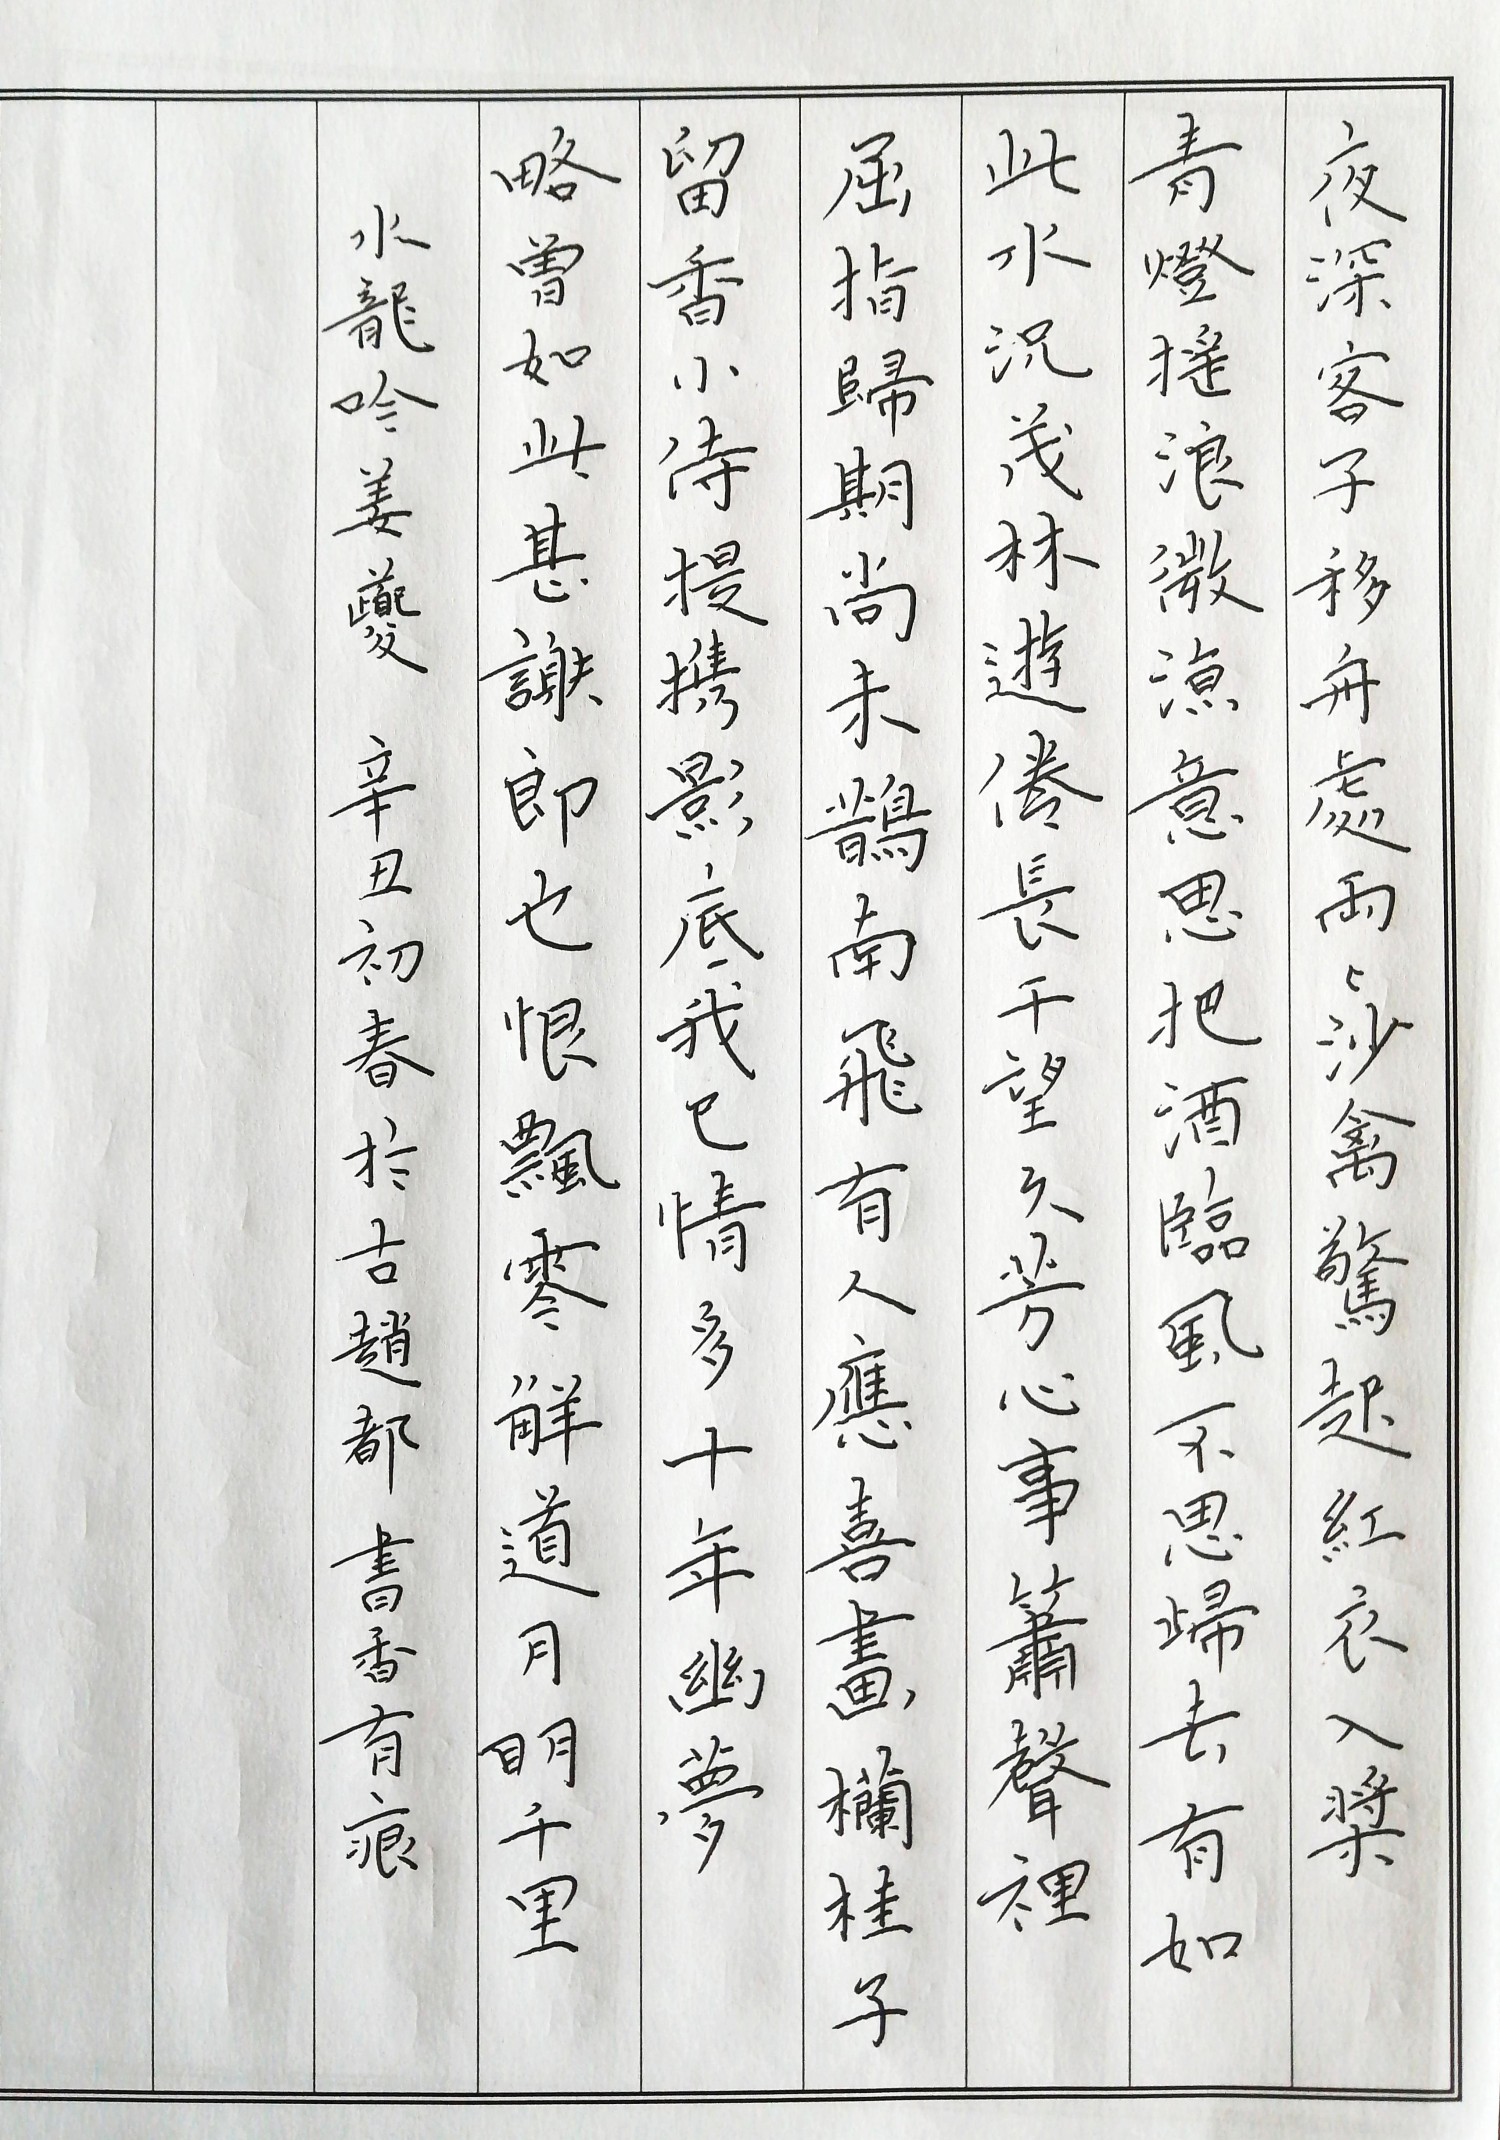 夜深客子移舟處兩〻沙禽驚起紅衣入槳
青燈搖浪微涼意思把酒臨風不思歸去有如
此水況茂林遊倦長干望久芳心事簫聲裡
屈指歸期尚未鵲南飛有人應喜畫欄桂子
留香小待提攜影底我已情多十年幽夢
略曾如此甚謝郎也恨飄零解道月明千里
水龍吟姜夔 辛丑初春於古趙都書香有痕